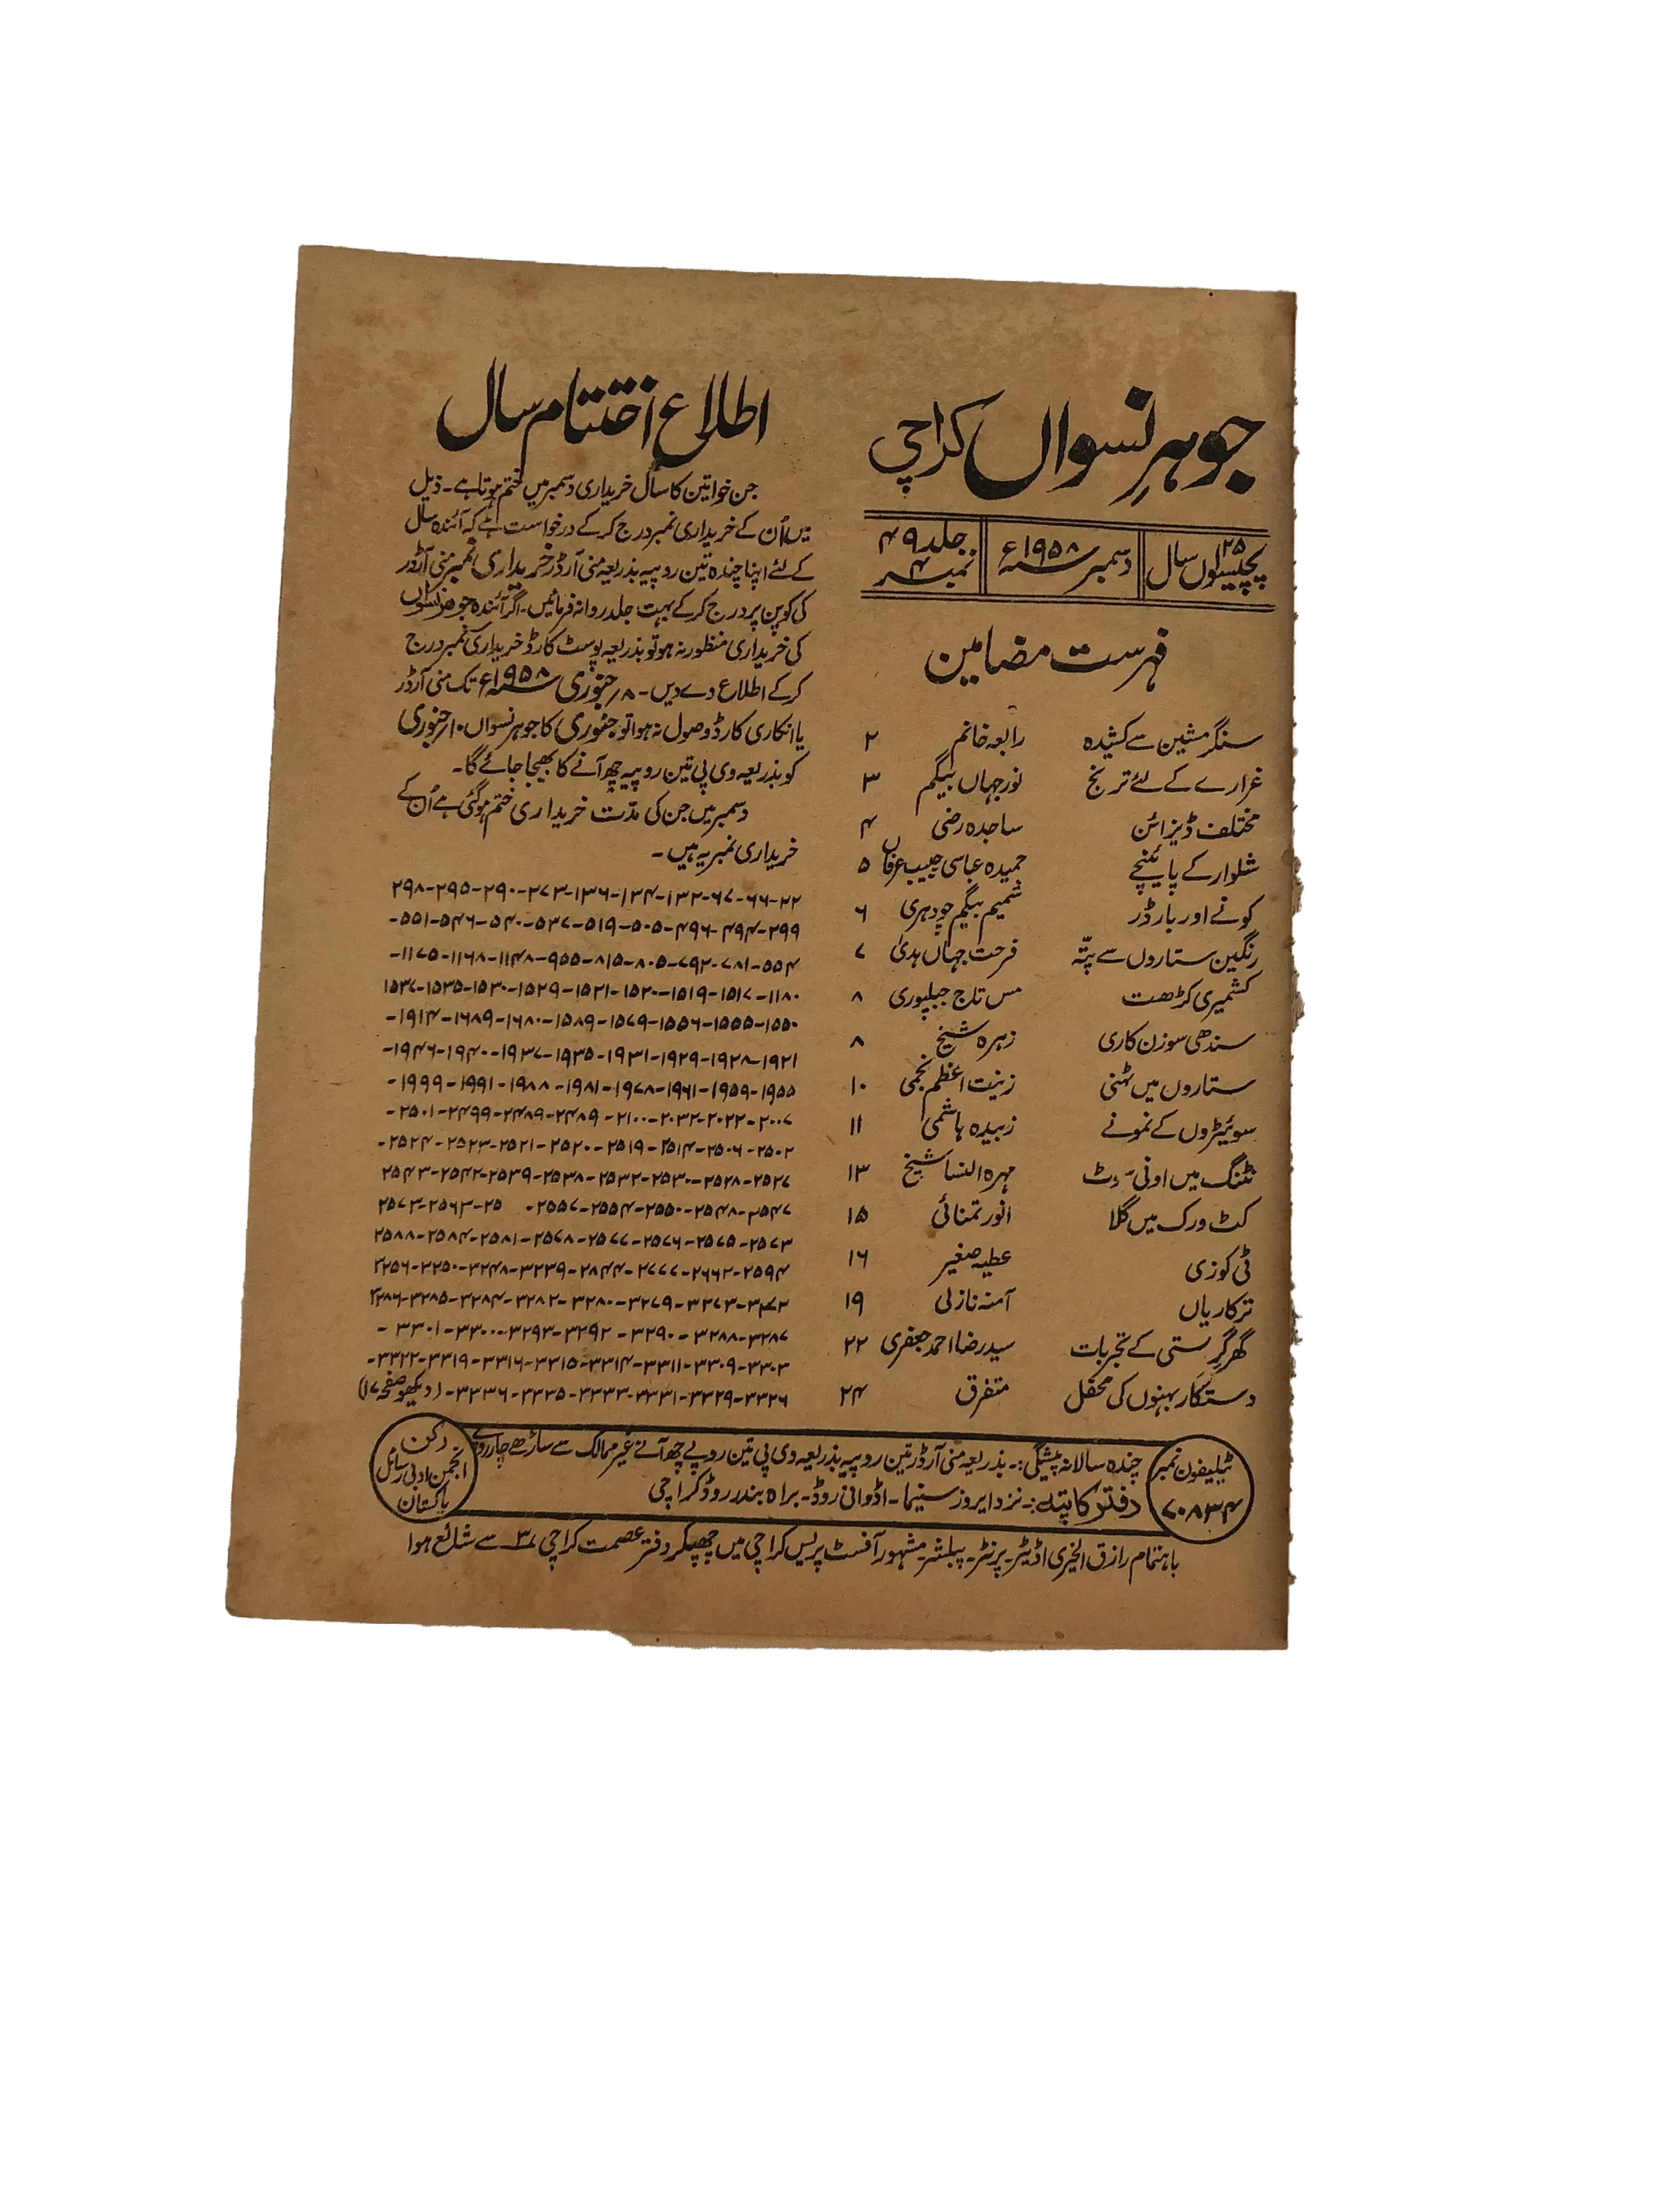 جوہرِ نسواں کراچی
۲۵ پچیسواں سال
دسمبر ۱۹۵۸ء
جلد ۴۹
نمبر ۴
فہرست مضامین
سنگر مشین سے کشیدہ رابعہ خانم ۲
غرارے کے لئے ترنج نورجہاں بیگم ۳
مختلف ڈیزائن ساجدہ رضی ۴
شلوار کے پائینچے حمیدہ عباسی حبیب عرفاں ۵
کونے اور بارڈر شمیم بیگم چودہری ۶
رنگین ستاروں سے پتّہ فرحت جہاں ہدیٰ ۷
کشمیری کڑھت مس تاج جبلپوری ۸
سندھی سوزن کاری زہرہ شیخ ۸
ستاروں میں ٹہنی زینت اعظم نجمی ۱۰
سوئیٹروں کے نمونے زبیدہ ہاشمی ۱۱
نٹنگ میں اونی مہرہ النسا شیخ ۱۳
کٹ ورک میں گلا انور تمنائی ۱۵
ٹی کوزی عطیہ صغیر ۱۶
ترکاریاں آمنہ نازلی ۱۹
گھر گرستی کے تجربات سید رضا احمد جعفری ۲۲
دستکار بہنوں کی محفل متفرق ۲۴
اطلاع اختتام سال
جن خواتین کا سال خریداری دسمبر میں ختم ہوتا ہے۔ ذیل
میں اُن کے خریداری نمبر درج کرکے درخواست ہے کہ آئندہ سال
کے لئے اپنا چندہ تین روپیہ بذریعہ منی آرڈر خریداری نمبر منی آرڈر
کی کوپن پر درج کرکے بہت جلد روانہ فرمائیں۔ اگر آئندہ جوہر نسواں
کی خریداری منظور نہ ہو تو بذریعہ پوسٹ کارڈ خریداری نمبر درج
کرکے اطلاع دے دیں۔ ۸؍ جنوری ۱۹۵۸ء تک منی آرڈر
یا انکاری کارڈ وصول نہ ہوا تو جنوری کا جوہر نسواں ۱۰؍ جنوری
کو بذریعہ وی پی تین روپیہ چھ آنے کا بھیجا جائے گا۔
دسمبر میں جن کی مدّت خریداری ختم ہوگئی ہے اُن کے
خریداری نمبر یہ ہیں۔
۲۲-۶۶-۶۷-۱۳۲-۱۳۴-۱۳۶-۲۷۳-۲۹۰-۲۹۵-۲۹۸
۲۹۹-۴۹۴-۴۹۶-۵۰۵-۵۱۹-۵۳۷-۵۴۰-۵۴۶-۵۵۱-
۵۵۴-۷۸۱-۷۹۲-۸۰۵-۸۱۵-۹۵۵-۱۱۴۸-۱۱۶۸-۱۱۷۵-
۱۱۸۰-۱۵۱۷-۱۵۱۹-۱۵۲۰-۱۵۲۱-۱۵۲۹-۱۵۳۰-۱۵۳۵-۱۵۳۷
۱۵۵۰-۱۵۵۵-۱۵۵۶-۱۵۷۹-۱۵۸۹-۱۶۸۰-۱۶۸۹-۱۹۱۴-
۱۹۲۱-۱۹۲۸-۱۹۲۹-۱۹۳۱-۱۹۳۵-۱۹۳۷-۱۹۴۰-۱۹۴۶-
۱۹۵۵-۱۹۵۹-۱۹۶۱-۱۹۷۸-۱۹۸۱-۱۹۸۸-۱۹۹۱-۱۹۹۹-
۲۰۰۷-۲۰۲۲-۲۰۳۲-۲۱۰۰-۲۴۸۹-۲۴۸۹-۲۴۹۹-۲۵۰۱-
۲۵۰۲-۲۵۰۶-۲۵۱۴-۲۵۱۹-۲۵۲۰-۲۵۲۱-۲۵۲۳-۲۵۲۴-
۲۵۲۷-۲۵۲۸-۲۵۳۰-۲۵۳۲-۲۵۳۸-۲۵۳۹-۲۵۴۲-۲۵۴۳
۲۵۴۷-۲۵۴۸-۲۵۵۰-۲۵۵۴-۲۵۵۷- ۲۵-۲۵۶۳-۲۵۷۳
۲۵۷۳-۲۵۷۵-۲۵۷۶-۲۵۷۷-۲۵۷۸-۲۵۸۱-۲۵۸۴-۲۵۸۸
۲۵۹۴-۲۶۶۲-۲۷۷۷-۲۸۴۴-۳۲۳۹-۳۲۴۸-۳۲۵۰-۳۲۵۶
۳۲۷۲-۳۲۷۳-۳۲۷۹-۳۲۸۰-۳۲۸۲-۳۲۸۴-۳۲۸۵-۳۲۸۶
۳۲۸۷-۳۲۸۸-۳۲۹۰-۳۲۹۲-۳۲۹۳-۳۳۰۰-۳۳۰۱-
۳۳۰۳-۳۳۰۹-۳۳۱۱-۳۳۱۴-۳۳۱۵-۳۳۱۶-۳۳۱۹-۳۳۲۲-
۳۳۲۶-۳۳۲۹-۳۳۳۱-۳۳۳۳-۳۳۳۵-۳۳۳۶- (دیکھو صفحہ ۱۷)
ٹیلیفون نمبر
۷۰۸۳۴
چندہ سالانہ پیشگی:۔ بذریعہ منی آرڈر تین روپیہ بذریعہ وی پی تین روپے چھ آنے غیر ممالک سے ساڑھے چار روپے
دفتر کا پتہ:۔ نزد ایروز سنیما۔ اڈوانی روڈ۔ براہ بندر روڈ کراچی
رکن
انجمن ادبی رسائل
پاکستان
باہتمام رازق الخیری اڈیٹر۔ پرنٹر۔ پبلشر۔ مشہور آفسٹ پریس کراچی میں چھپکر دفتر عصمت کراچی ۳ سے شائع ہوا